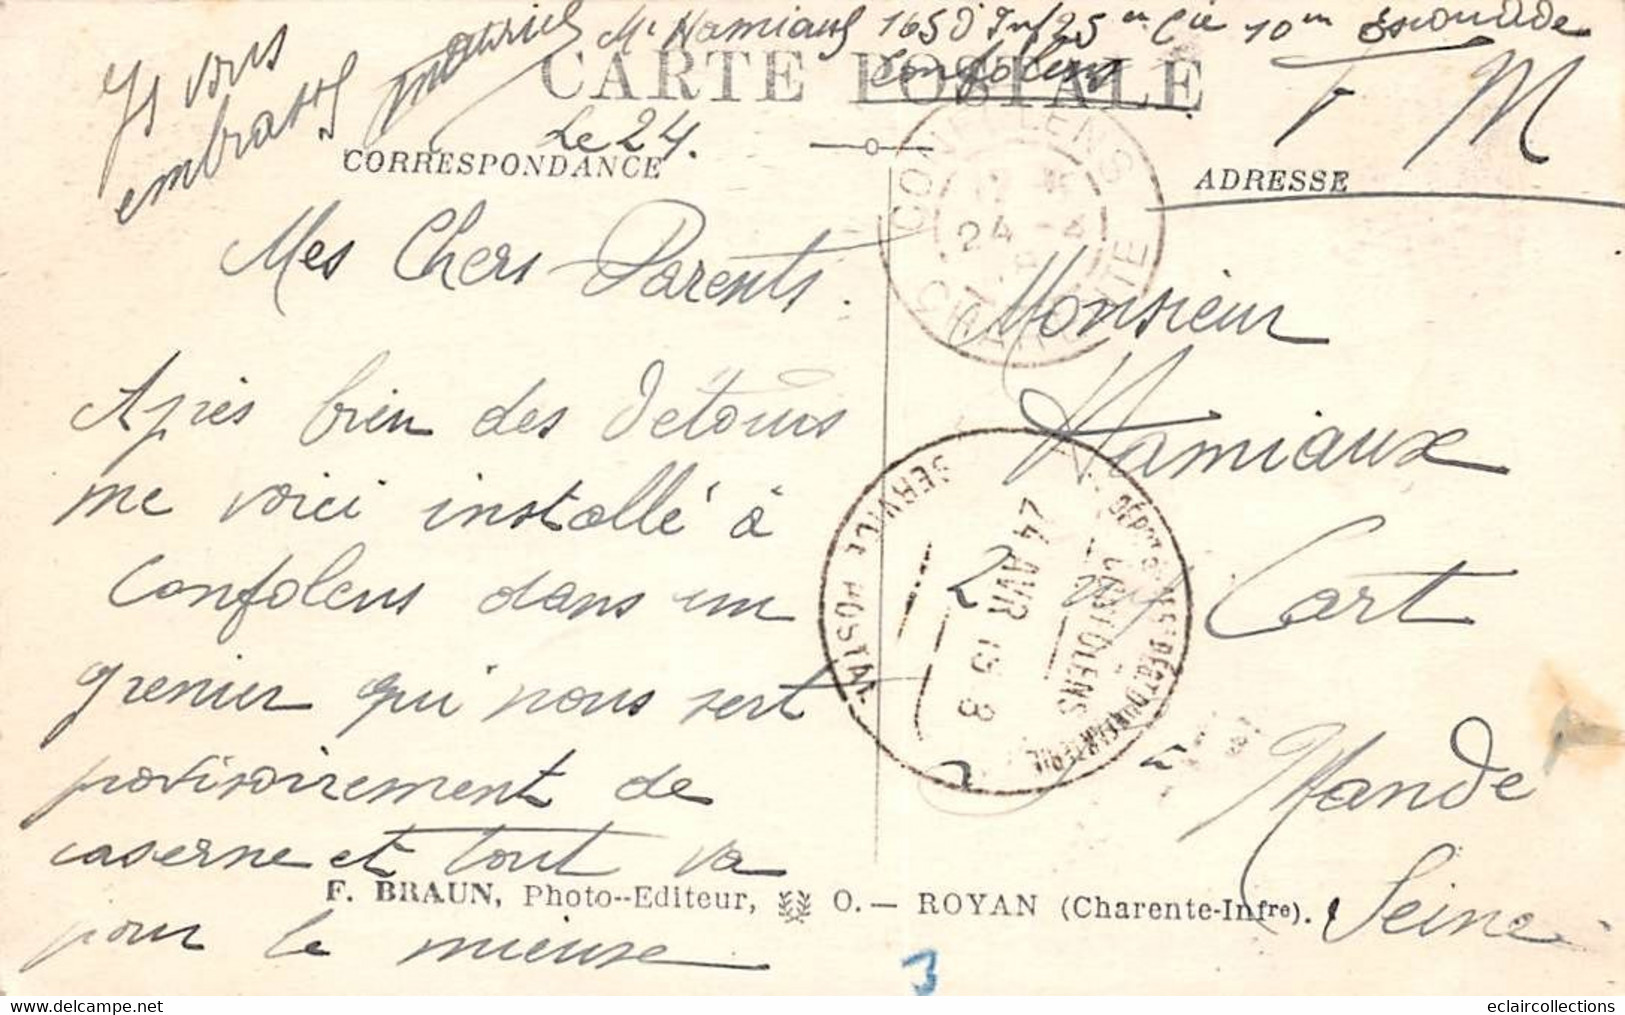 Je vous
embrasse Maurice
Mce Namiaux 165 d'Inf 25 en Cie 10 em Escouade
Confolens
CARTE POSTALE
F M
Le 24.
CORRESPONDANCE
ADRESSE
CONFOLENS
24 - 4
CHARENTE
Mes Chers Parents.
Après bien des détours
me voici installé à
Confolens dans un
grenier qui nous sert
provisoirement de
caserne et tout va
pour le mieux
Monsieur
Namiaux
2 Cart
à Mandé
Seine
SERVICE POSTAL
24 AVR 15 8
CONFOLENS
F. BRAUN, Photo--Editeur, O.— ROYAN (Charente-Infre).
3
eclaircollections